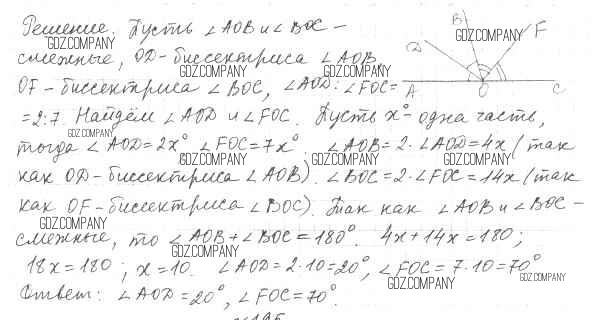 Решение. Пусть ∠AOB и ∠BOC –
смежные, OD – биссектриса ∠AOB,
OF – биссектриса ∠BOC, ∠AOD : ∠FOC =
= 2:7. Найдём ∠AOD и ∠FOC. Пусть x° – одна часть,
тогда ∠AOD = 2x°, ∠FOC = 7x°. ∠AOB = 2·∠AOD = 4x (так
как OD – биссектриса ∠AOB). ∠BOC = 2·∠FOC = 14x (так
как OF – биссектриса ∠BOC). Так как ∠AOB и ∠BOC –
смежные, то ∠AOB + ∠BOC = 180°. 4x + 14x = 180;
18x = 180; x = 10. ∠AOD = 2·10 = 20°, ∠FOC = 7·10 = 70°
Ответ: ∠AOD = 20°, ∠FOC = 70°.
B
D
F
A
O
C
GDZ.COMPANY
GDZ.COMPANY
GDZ.COMPANY
GDZ.COMPANY
GDZ.COMPANY
GDZ.COMPANY
GDZ.COMPANY
GDZ.COMPANY
GDZ.COMPANY
GDZ.COMPANY
GDZ.COMPANY
GDZ.COMPANY
GDZ.COMPANY
GDZ.COMPANY